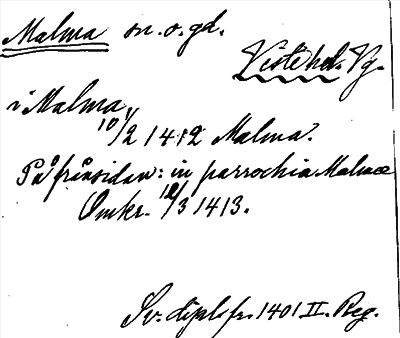 Malma sn. o. gd.
Viste hd. Vg.
i Malma,
10/2 1412 Malma.
På frånsidan: in parrochia Malmæ
Omkr. 12/3 1413.
Sv. dipl. fr. 1401 II. Reg.